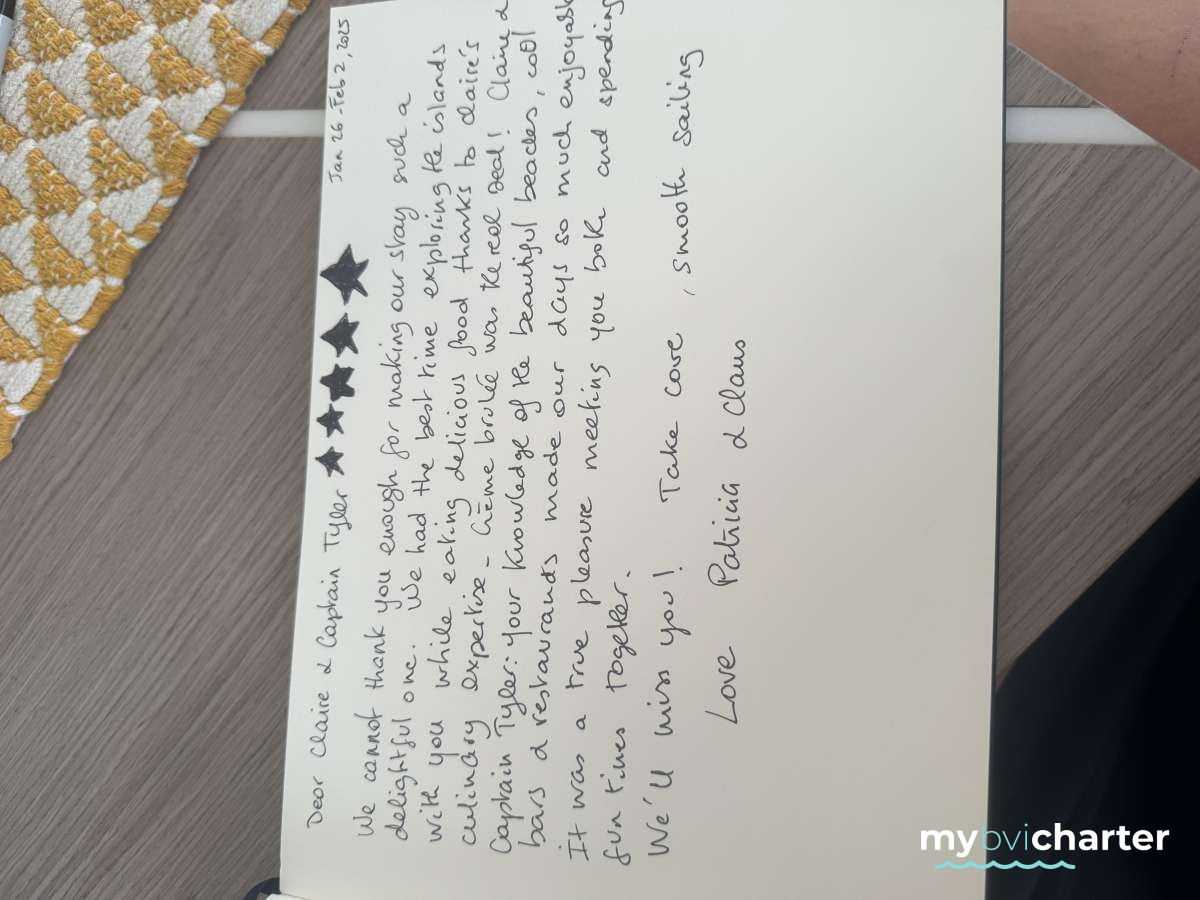 Jan 26 - Feb 2, 2025
Dear Claire & Captain Tyler ★★★★★
We cannot thank you enough for making our stay such a
delightful one. We had the best time exploring the islands
with you while eating delicious food thanks to Claire's
culinary expertise - Crème brulée was the real deal! Claire &
Captain Tyler: your knowledge of the beautiful beaches, cool
bars & restaurants made our days so much enjoyable
It was a true pleasure meeting you both and spending
fun times together.
We'll miss you! Take care, smooth sailing
Love Patricia & Claus
mybvicharter